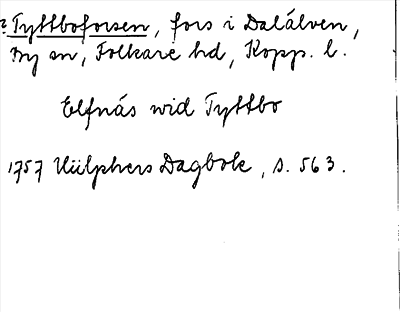 ? Tyttboforsen, fors i Dalälven,
By sn, Folkare hd, Kopp. l.
Elfnäs wid Tyttbo
1757 Hülphers Dagbok, s. 563.